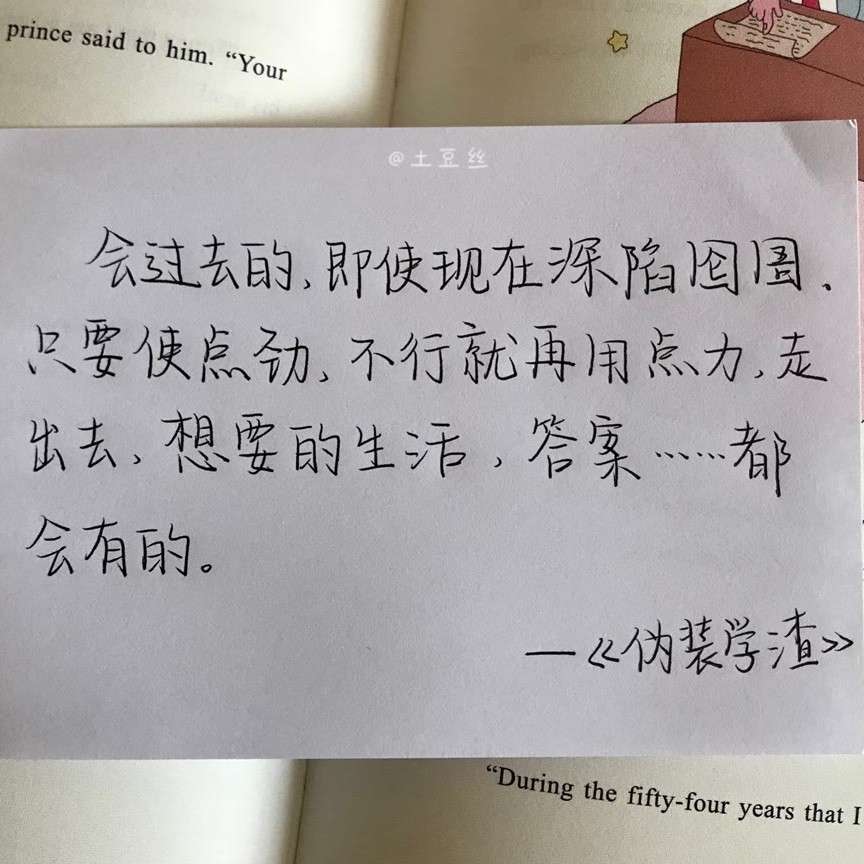 prince said to him. “Your
@土豆丝
会过去的,即使现在深陷囹圄、
只要使点劲,不行就再用点力,走
出去,想要的生活,答案……都
会有的。
—《伪装学渣》
“During the fifty-four years that I